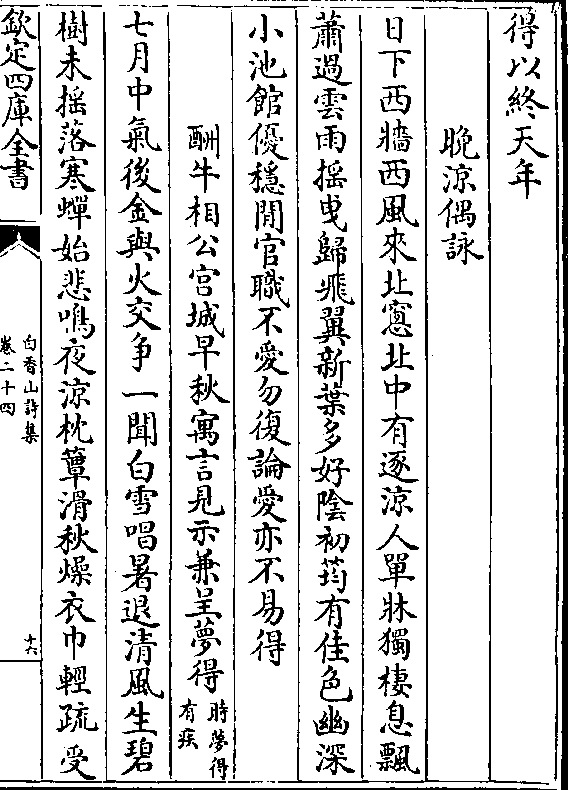 得以終天年
晩涼偶詠
日下西牆西風來北窻北中有逐涼人單牀獨棲息飄
蕭過雲雨揺曵歸飛翼新葉多好隂初筠有佳色幽深
小池館優穩閒官職不愛勿復論愛亦不易得
酬牛相公宫城早秋寓言見示兼呈夢得時夢得有疾
七月中氣後金與火交争一聞白雪唱暑退清風生碧
樹未揺落寒蟬始悲鳴夜涼枕簟滑秋燥衣巾輕疏受
欽定四庫全書
白香山詩集
卷二十四
十六